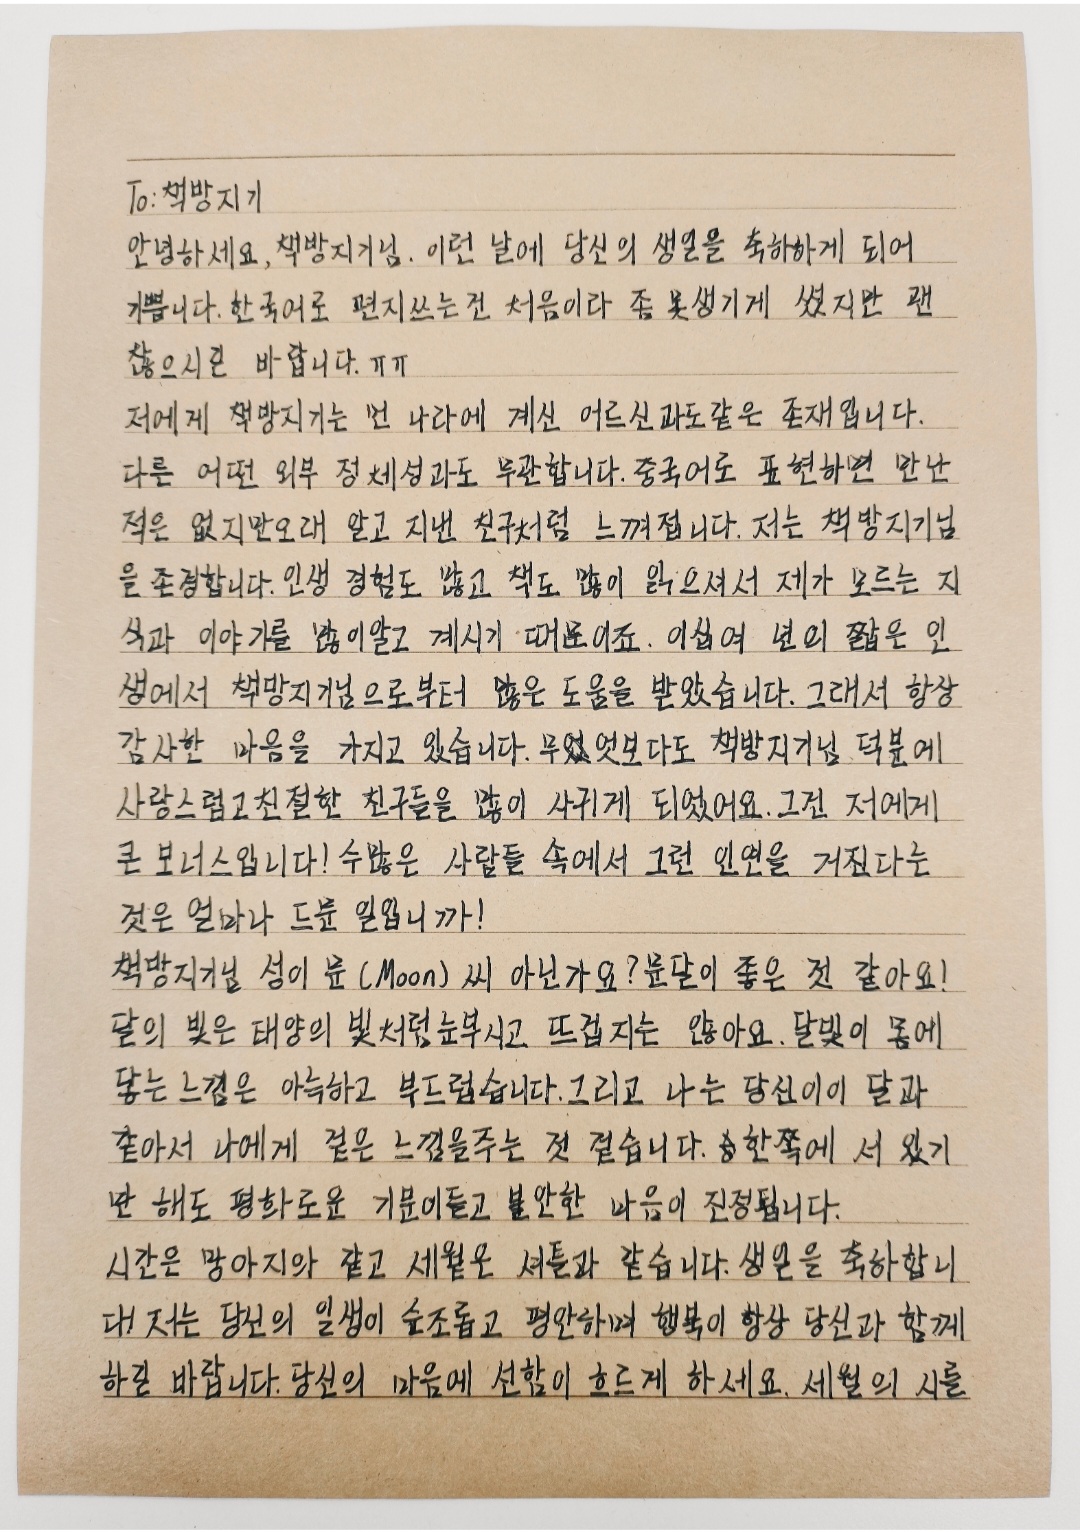 To: 책방지기
안녕하세요, 책방지기님. 이런 날에 당신의 생일을 축하하게 되어
기쁩니다. 한국어로 편지쓰는건 처음이라 좀 못생기게 썼지만 괜
찮으시길 바랍니다. ㅠㅠ
저에게 책방지기는 먼 나라에 계신 어르신과도같은 존재입니다.
다른 어떤 외부 정체성과도 무관합니다. 중국어로 표현하면 만난
적은 없지만오래 알고 지낸 친구처럼 느껴집니다. 저는 책방지기님
을 존경합니다. 인생 경험도 많고 책도 많이 읽으셔서 제가 모르는 지
식과 이야기를 많이알고 계시기 때문이죠. 이십여 년의 짧은 인
생에서 책방지기님으로부터 많은 도움을 받았습니다. 그래서 항상
감사한 마음을 가지고 있습니다. 무엇보다도 책방지기님 덕분에
사랑스럽고친절한 친구들을 많이 사귀게 되었어요. 그건 저에게
큰 보너스입니다! 수많은 사람들 속에서 그런 인연을 가진다는
것은 얼마나 드문 일입니까!
책방지기님 성이 문 (Moon) 씨 아닌가요? 문달이 좋은 것 같아요!
달의 빛은 태양의 빛처럼눈부시고 뜨겁지는 않아요. 달빛이 몸에
닿는느낌은 아늑하고 부드럽습니다. 그리고 나는 당신이이 달과
같아서 나에게 같은 느낌을주는 것 같습니다. 한쪽에 서 있기
만 해도 평화로운 기분이들고 불안한 마음이 진정됩니다.
시간은 망아지와 같고 세월은 셔틀과 같습니다. 생일을 축하합니
다! 저는 당신의 일생이 순조롭고 평안하며 행복이 항상 당신과 함께
하길 바랍니다. 당신의 마음에 선함이 흐르게 하세요. 세월의 시를